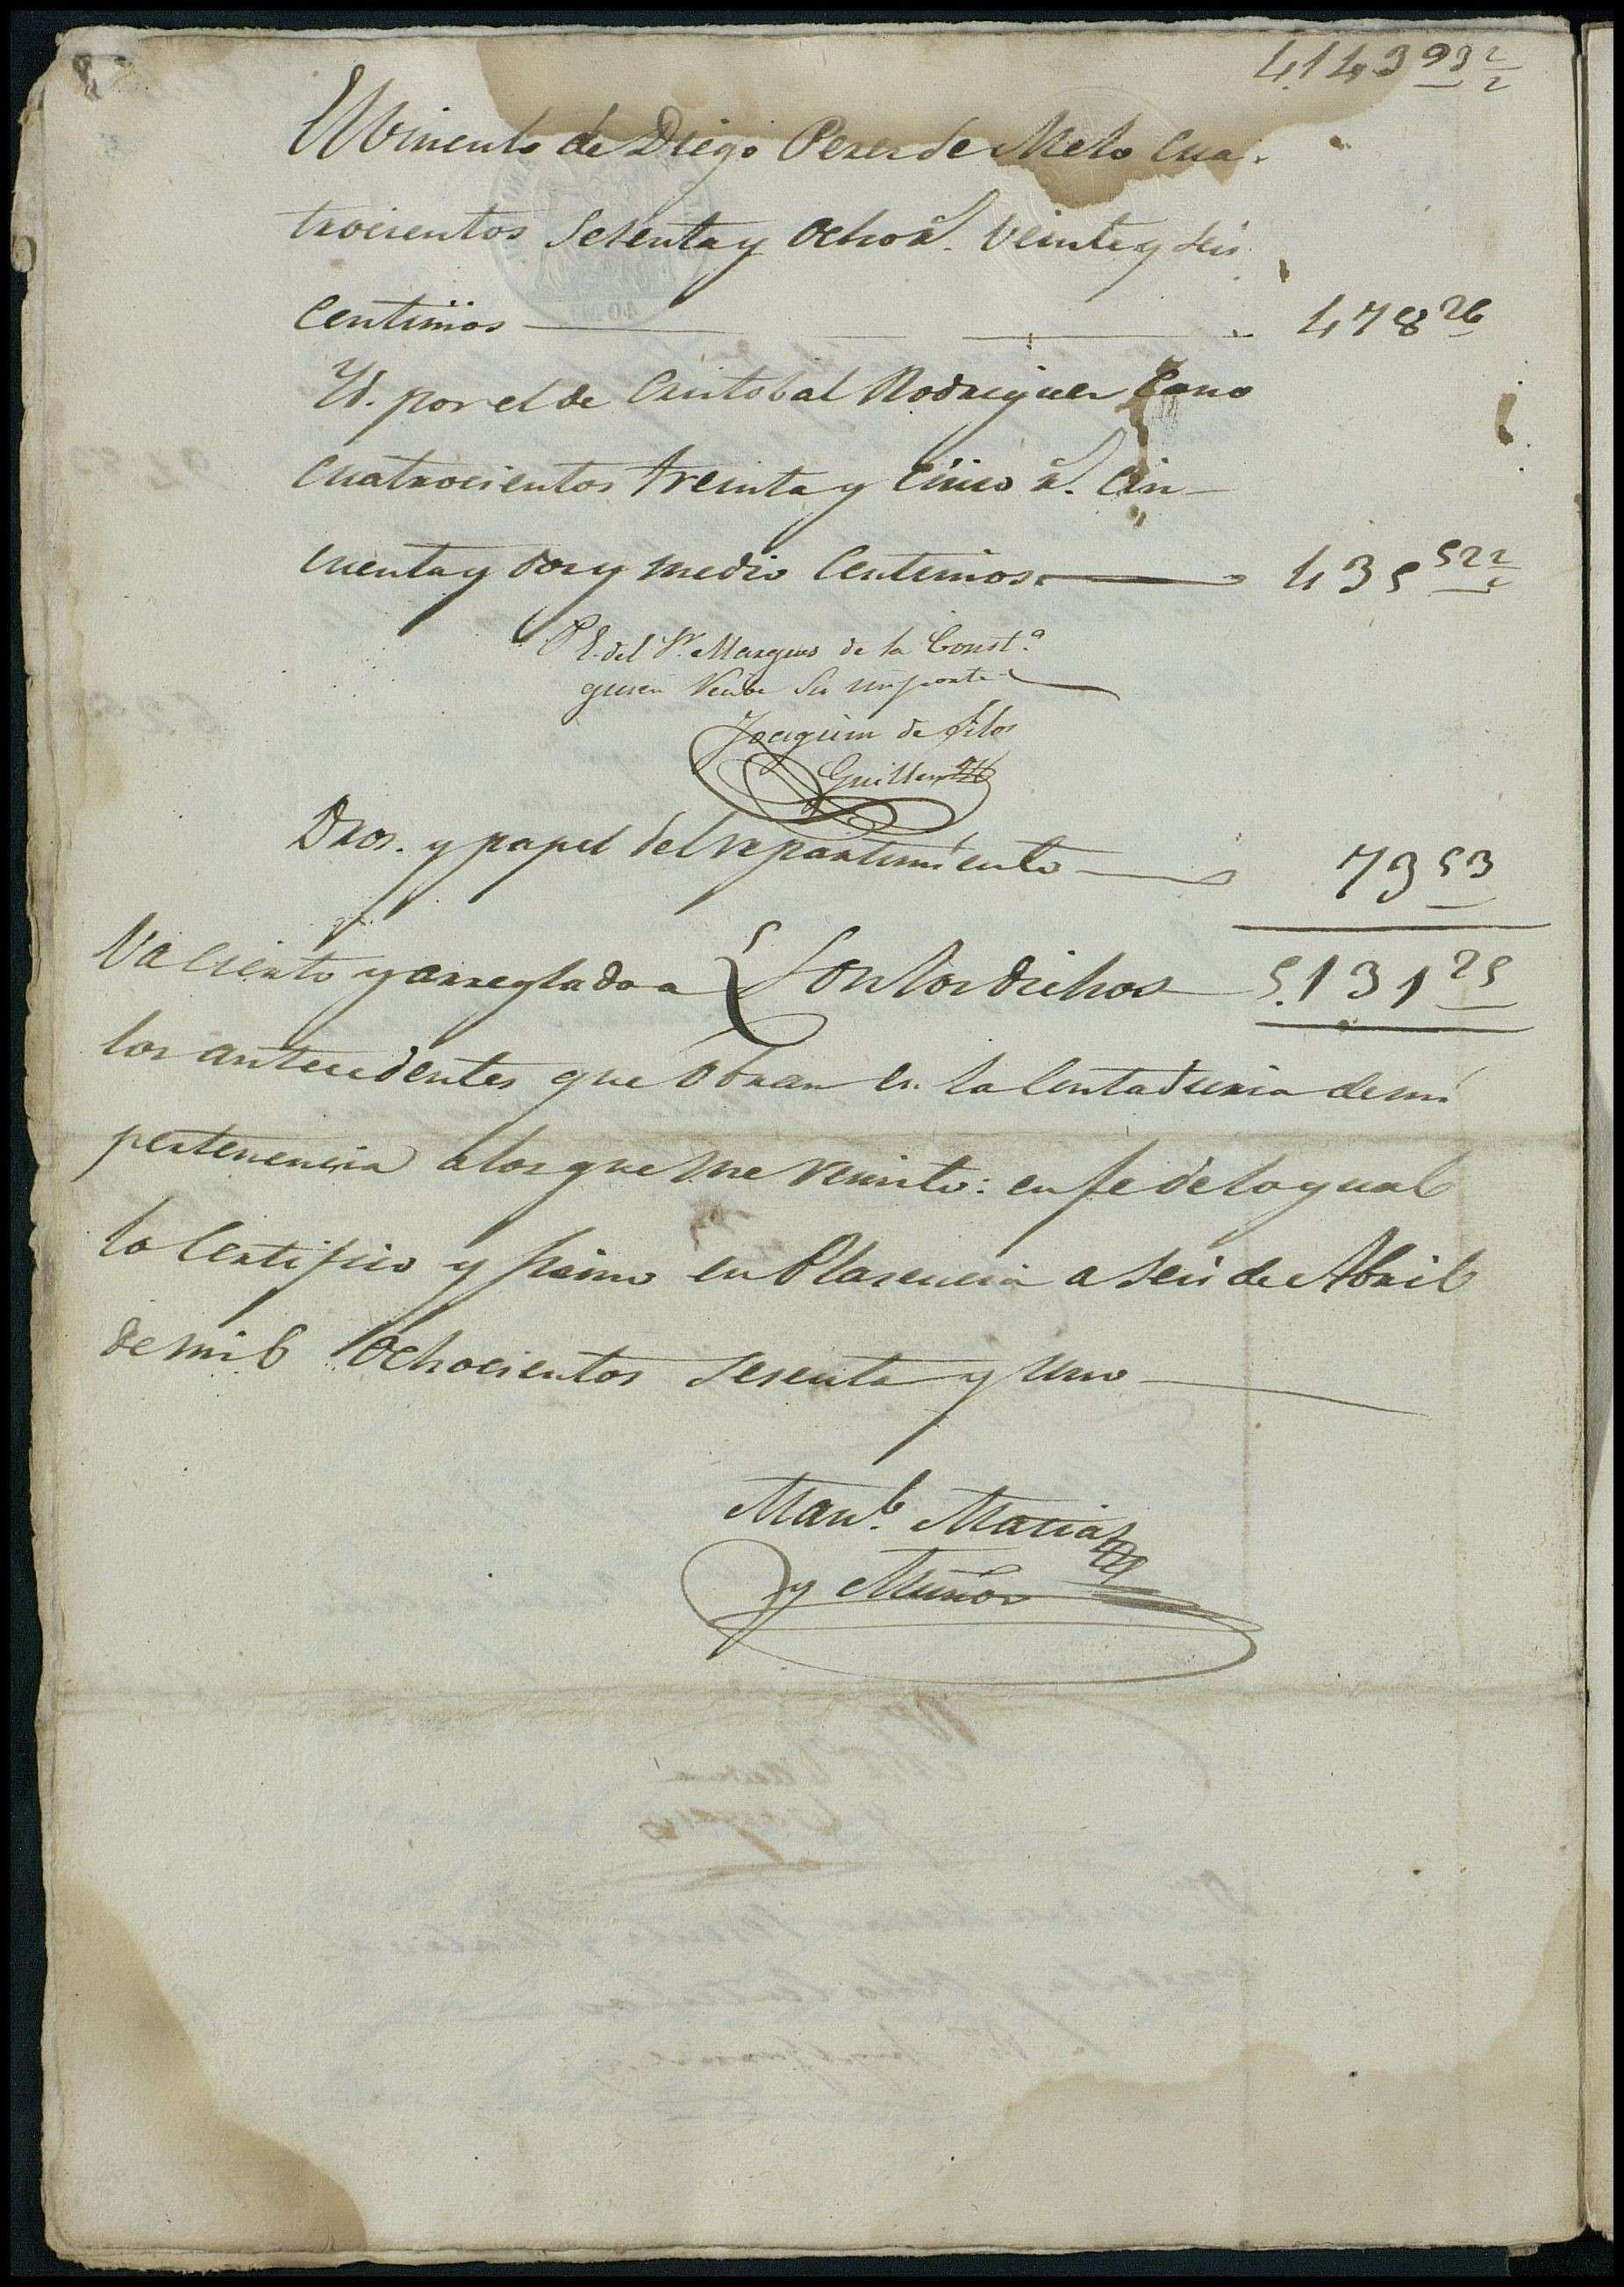 4.143 93 ½
El Vinculo de Diego Perez de Melo cua-
trocientos setenta y ocho r.s veinte y seis
centimos 478 26
Yd. por el de Cristobal Rodriguez Cano
cuatrocientos treinta y cinco r.s cin-
cuenta y dos y medio centimos 435 52 ½
P. E. del S.r Marques de la Const.a
quien recibe su importe
Joaquin de Silos
Guillen
Dros. y papel del repartimiento 73 53
Va cierto y arreglado a { Son los dichos 5.131 25
los antecedentes que obran en la Contaduria de mi
pertenencia a los que me remito: en fe de lo qual
lo certifico y firmo en Plasencia a seis de Abril
de mil ochocientos sesenta y uno
Man.l Macias
y Muñoz